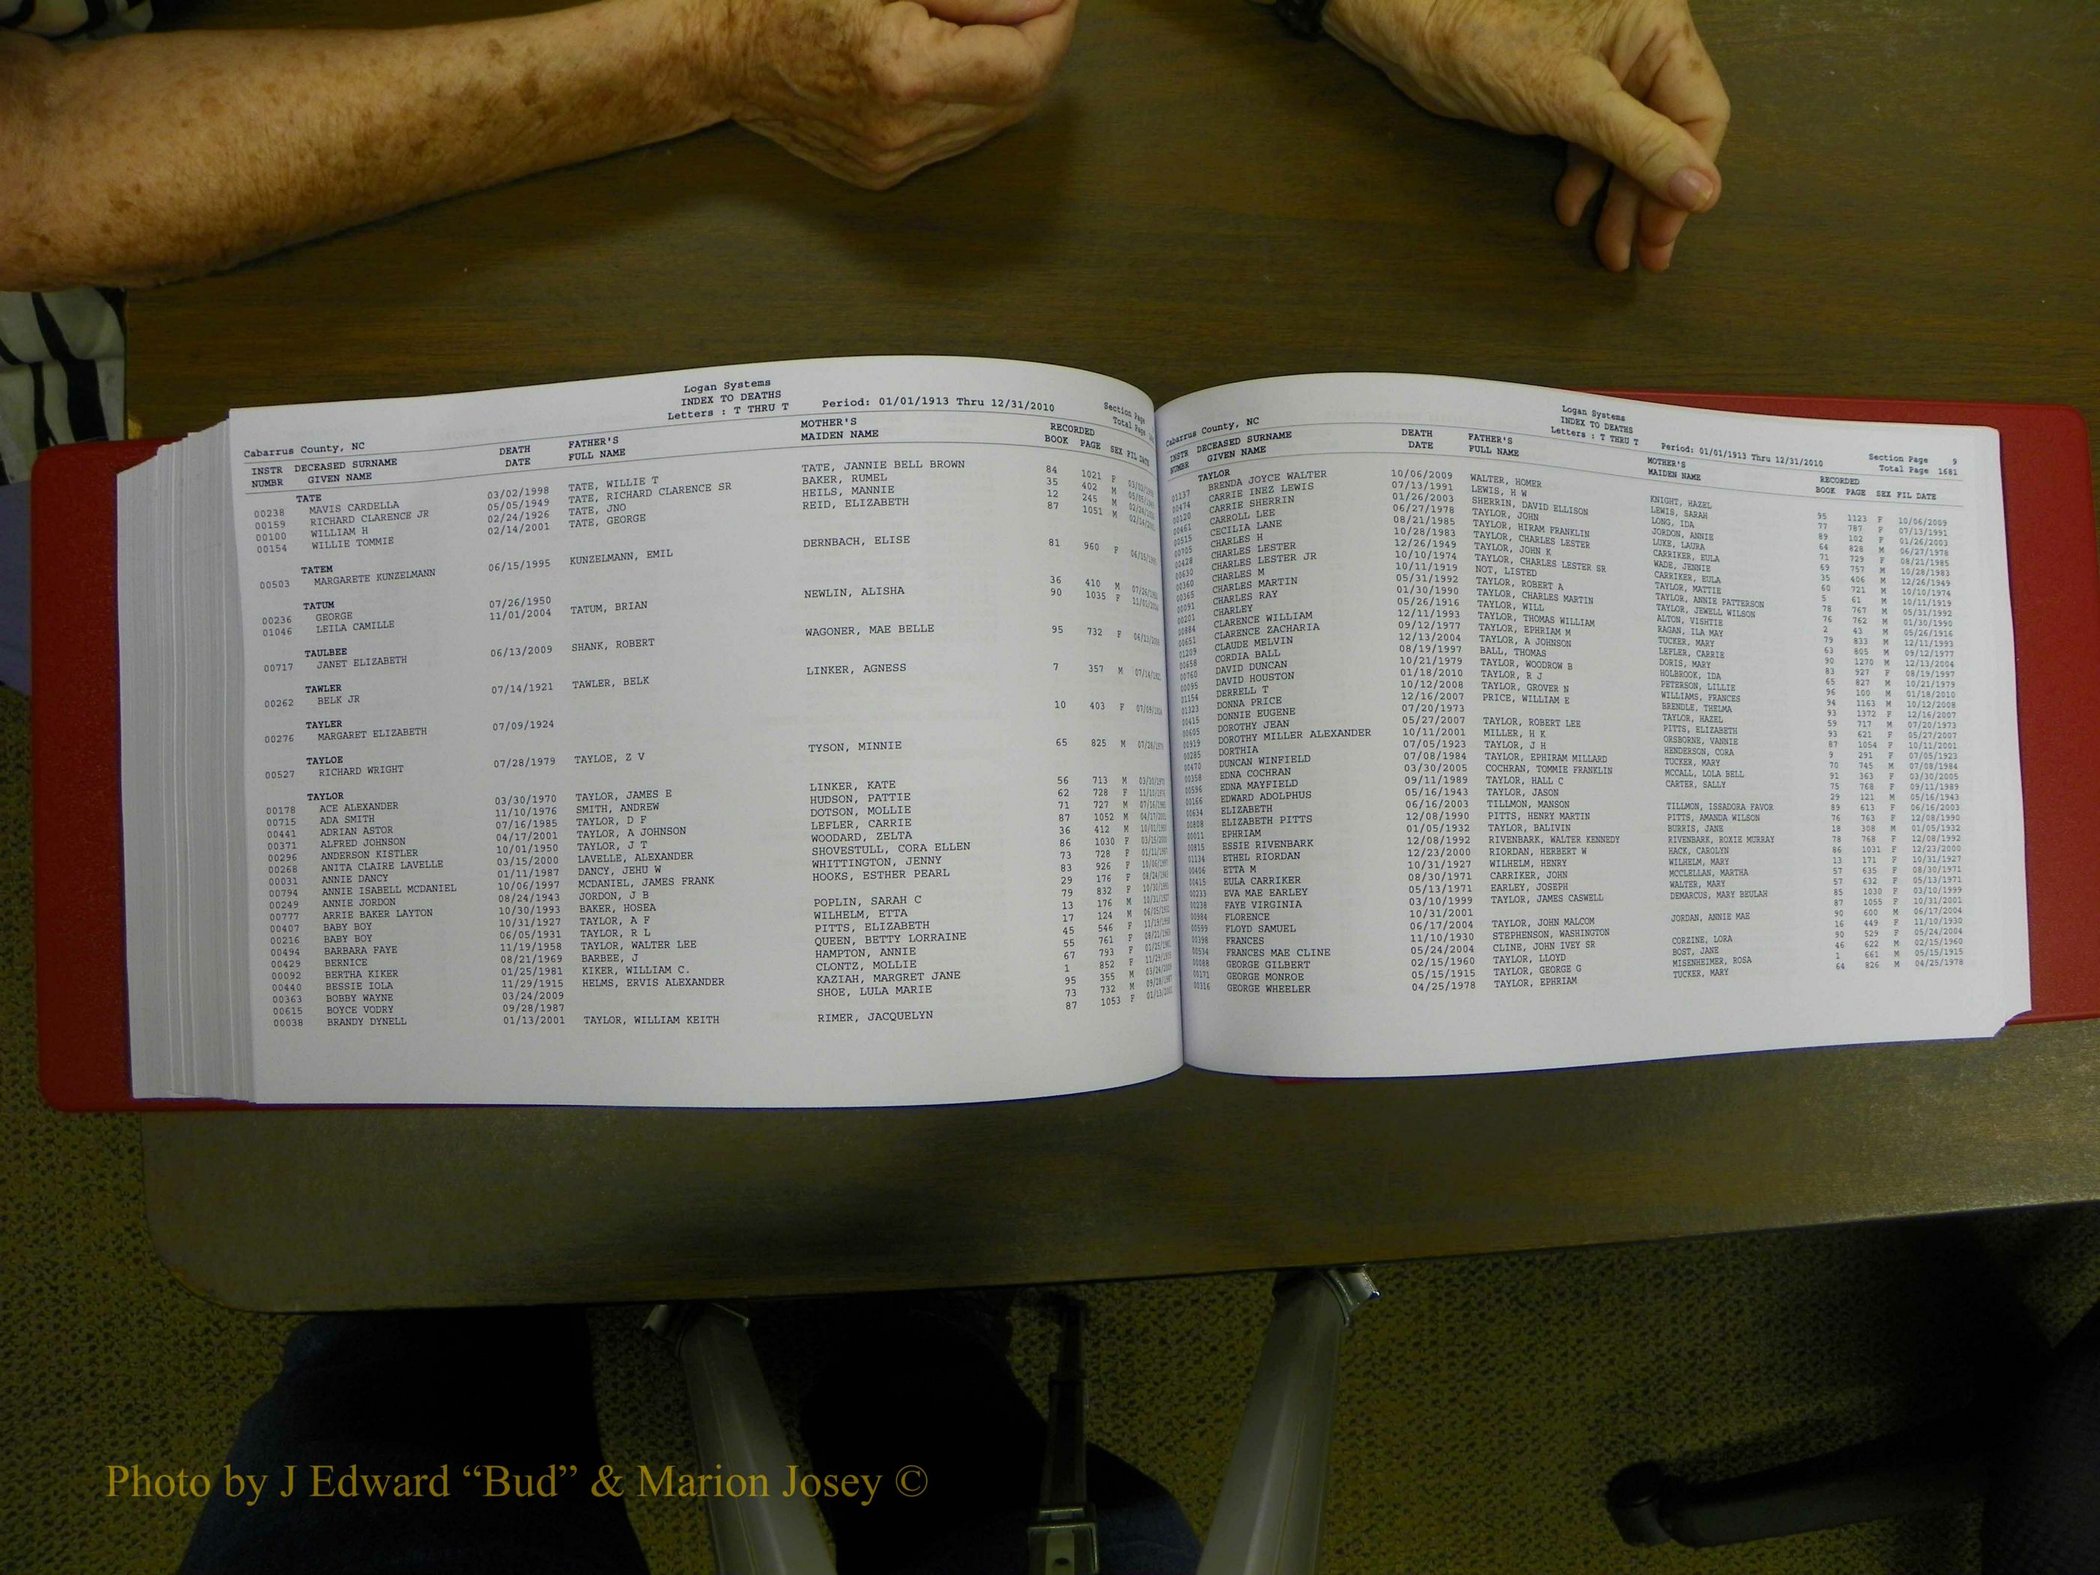 Logan Systems
INDEX TO DEATHS
Letters : T THRU T Period: 01/01/1913 Thru 12/31/2010 Section Page
Cabarrus County, NC Total Page
INSTR NUMBR DECEASED SURNAME GIVEN NAME DEATH DATE FATHER'S FULL NAME MOTHER'S MAIDEN NAME RECORDED BOOK PAGE SEX FIL DATE
TATE
00238 MAVIS CARDELLA 03/02/1998 TATE, WILLIE T TATE, JANNIE BELL BROWN 84 1021 F 03/02/1998
00159 RICHARD CLARENCE JR 05/05/1949 TATE, RICHARD CLARENCE SR BAKER, RUMEL 35 402 M 05/05/1949
00100 WILLIAM H 02/24/1926 TATE, JNO HEILS, MANNIE 12 245 M 02/24/1926
00154 WILLIE TOMMIE 02/14/2001 TATE, GEORGE REID, ELIZABETH 87 1051 M 02/14/2001
TATEM
00503 MARGARETE KUNZELMANN 06/15/1995 KUNZELMANN, EMIL DERNBACH, ELISE 81 960 F 06/15/1995
TATUM
00236 GEORGE 07/26/1950 36 410 M 07/26/1950
01046 LEILA CAMILLE 11/01/2004 TATUM, BRIAN NEWLIN, ALISHA 90 1035 F 11/01/2004
TAULBEE
00717 JANET ELIZABETH 06/13/2009 SHANK, ROBERT WAGONER, MAE BELLE 95 732 F 06/13/2009
TAWLER
00262 BELK JR 07/14/1921 TAWLER, BELK LINKER, AGNESS 7 357 M 07/14/1921
TAYLER
00276 MARGARET ELIZABETH 07/09/1924 10 403 F 07/09/1924
TAYLOE
00527 RICHARD WRIGHT 07/28/1979 TAYLOE, Z V TYSON, MINNIE 65 825 M 07/28/1979
TAYLOR
00178 ACE ALEXANDER 03/30/1970 TAYLOR, JAMES E LINKER, KATE 56 713 M 03/30/1970
00715 ADA SMITH 11/10/1976 SMITH, ANDREW HUDSON, PATTIE 62 728 F 11/10/1976
00441 ADRIAN ASTOR 07/16/1985 TAYLOR, D F DOTSON, MOLLIE 71 727 M 07/16/1985
00371 ALFRED JOHNSON 04/17/2001 TAYLOR, A JOHNSON LEFLER, CARRIE 87 1052 M 04/17/2001
00296 ANDERSON KISTLER 10/01/1950 TAYLOR, J T WOODARD, ZELTA 36 412 M 10/01/1950
00268 ANITA CLAIRE LAVELLE 03/15/2000 LAVELLE, ALEXANDER SHOVESTULL, CORA ELLEN 86 1030 F 03/15/2000
00031 ANNIE DANCY 01/11/1987 DANCY, JEHU W WHITTINGTON, JENNY 73 728 F 01/11/1987
00794 ANNIE ISABELL MCDANIEL 10/06/1997 MCDANIEL, JAMES FRANK HOOKS, ESTHER PEARL 83 926 F 10/06/1997
00249 ANNIE JORDON 08/24/1943 JORDON, J B 29 176 F 08/24/1943
00777 ARRIE BAKER LAYTON 10/30/1993 BAKER, HOSEA POPLIN, SARAH C 79 832 F 10/30/1993
00407 BABY BOY 10/31/1927 TAYLOR, A F WILHELM, ETTA 13 176 M 10/31/1927
00216 BABY BOY 06/05/1931 TAYLOR, R L PITTS, ELIZABETH 17 124 M 06/05/1931
00494 BARBARA FAYE 11/19/1958 TAYLOR, WALTER LEE QUEEN, BETTY LORRAINE 45 546 F 11/19/1958
00429 BERNICE 08/21/1969 BARBEE, J HAMPTON, ANNIE 55 761 F 08/21/1969
00092 BERTHA KIKER 01/25/1981 KIKER, WILLIAM C. CLONTZ, MOLLIE 67 793 F 01/25/1981
00440 BESSIE IOLA 11/29/1915 HELMS, ERVIS ALEXANDER KAZIAH, MARGRET JANE 1 852 F 11/29/1915
00363 BOBBY WAYNE 03/24/2009 SHOE, LULA MARIE 95 355 M 03/24/2009
00615 BOYCE VODRY 09/28/1987 73 732 M 09/28/1987
00038 BRANDY DYNELL 01/13/2001 TAYLOR, WILLIAM KEITH RIMER, JACQUELYN 87 1053 F 01/13/2001
Logan Systems
INDEX TO DEATHS
Letters : T THRU T Period: 01/01/1913 Thru 12/31/2010 Section Page 9
Cabarrus County, NC Total Page 1681
INSTR NUMBR DECEASED SURNAME GIVEN NAME DEATH DATE FATHER'S FULL NAME MOTHER'S MAIDEN NAME RECORDED BOOK PAGE SEX FIL DATE
TAYLOR
01137 BRENDA JOYCE WALTER 10/06/2009 WALTER, HOMER KNIGHT, HAZEL 95 1123 F 10/06/2009
00474 CARRIE INEZ LEWIS 07/13/1991 LEWIS, H W LEWIS, SARAH 77 787 F 07/13/1991
00120 CARRIE SHERRIN 01/26/2003 SHERRIN, DAVID ELLISON LONG, IDA 89 102 F 01/26/2003
00461 CARROLL LEE 06/27/1978 TAYLOR, JOHN JORDON, ANNIE 64 828 M 06/27/1978
00515 CECILIA LANE 08/21/1985 TAYLOR, HIRAM FRANKLIN LUKE, LAURA 71 729 F 08/21/1985
00705 CHARLES H 10/28/1983 TAYLOR, CHARLES LESTER CARRIKER, EULA 69 757 M 10/28/1983
00428 CHARLES LESTER 12/26/1949 TAYLOR, JOHN K WADE, JENNIE 35 406 M 12/26/1949
00630 CHARLES LESTER JR 10/10/1974 TAYLOR, CHARLES LESTER SR CARRIKER, EULA 60 721 M 10/10/1974
00360 CHARLES M 10/11/1919 NOT, LISTED TAYLOR, MATTIE 5 61 M 10/11/1919
00365 CHARLES MARTIN 05/31/1992 TAYLOR, ROBERT A TAYLOR, ANNIE PATTERSON 78 767 M 05/31/1992
00091 CHARLES RAY 01/30/1990 TAYLOR, CHARLES MARTIN TAYLOR, JEWELL WILSON 76 762 M 01/30/1990
00201 CHARLEY 05/26/1916 TAYLOR, WILL ALTON, VISHTIE 2 43 M 05/26/1916
00884 CLARENCE WILLIAM 12/11/1993 TAYLOR, THOMAS WILLIAM RAGAN, ILA MAY 79 833 M 12/11/1993
00651 CLARENCE ZACHARIA 09/12/1977 TAYLOR, EPHRIAM M TUCKER, MARY 63 805 M 09/12/1977
01209 CLAUDE MELVIN 12/13/2004 TAYLOR, A JOHNSON LEFLER, CARRIE 90 1270 M 12/13/2004
00658 CORDIA BALL 08/19/1997 BALL, THOMAS DORIS, MARY 83 927 F 08/19/1997
00760 DAVID DUNCAN 10/21/1979 TAYLOR, WOODROW B HOLBROOK, IDA 65 827 M 10/21/1979
00095 DAVID HOUSTON 01/18/2010 TAYLOR, R J PETERSON, LILLIE 96 100 M 01/18/2010
01154 DERRELL T 10/12/2008 TAYLOR, GROVER N WILLIAMS, FRANCES 94 1163 M 10/12/2008
01323 DONNA PRICE 12/16/2007 PRICE, WILLIAM E BRENDLE, THELMA 93 1372 F 12/16/2007
00415 DONNIE EUGENE 07/20/1973 TAYLOR, HAZEL 59 717 M 07/20/1973
00605 DOROTHY JEAN 05/27/2007 TAYLOR, ROBERT LEE PITTS, ELIZABETH 93 621 F 05/27/2007
00919 DOROTHY MILLER ALEXANDER 10/11/2001 MILLER, H K ORSBORNE, VANNIE 87 1054 F 10/11/2001
00285 DORTHIA 07/05/1923 TAYLOR, J H HENDERSON, CORA 9 291 F 07/05/1923
00470 DUNCAN WINFIELD 07/08/1984 TAYLOR, EPHIRAM MILLARD TUCKER, MARY 70 745 M 07/08/1984
00358 EDNA COCHRAN 03/30/2005 COCHRAN, TOMMIE FRANKLIN MCCALL, LOLA BELL 91 363 F 03/30/2005
00596 EDNA MAYFIELD 09/11/1989 TAYLOR, HALL C CARTER, SALLY 75 768 F 09/11/1989
00166 EDWARD ADOLPHUS 05/16/1943 TAYLOR, JASON 29 121 M 05/16/1943
00634 ELIZABETH 06/16/2003 TILLMON, MANSON TILLMON, ISSADORA FAVOR 89 613 F 06/16/2003
00808 ELIZABETH PITTS 12/08/1990 PITTS, HENRY MARTIN PITTS, AMANDA WILSON 76 763 F 12/08/1990
00011 EPHRIAM 01/05/1932 TAYLOR, BALIVIN BURRIS, JANE 18 308 M 01/05/1932
00815 ESSIE RIVENBARK 12/08/1992 RIVENBARK, WALTER KENNEDY RIVENBARK, ROXIE MURRAY 78 768 F 12/08/1992
01134 ETHEL RIORDAN 12/23/2000 RIORDAN, HERBERT W HACK, CAROLYN 86 1031 F 12/23/2000
00406 ETTA M 10/31/1927 WILHELM, HENRY WILHELM, MARY 13 171 F 10/31/1927
00415 EULA CARRIKER 08/30/1971 CARRIKER, JOHN MCCLELLAN, MARTHA 57 635 F 08/30/1971
00233 EVA MAE EARLEY 05/13/1971 EARLEY, JOSEPH WALTER, MARY 57 632 F 05/13/1971
00238 FAYE VIRGINIA 03/10/1999 TAYLOR, JAMES CASWELL DEMARCUS, MARY BEULAH 85 1030 F 03/10/1999
00984 FLORENCE 10/31/2001 87 1055 F 10/31/2001
00599 FLOYD SAMUEL 06/17/2004 TAYLOR, JOHN MALCOM JORDAN, ANNIE MAE 90 600 M 06/17/2004
00398 FRANCES 11/10/1930 STEPHENSON, WASHINGTON 16 449 F 11/10/1930
00534 FRANCES MAE CLINE 05/24/2004 CLINE, JOHN IVEY SR CORZINE, LORA 90 529 F 05/24/2004
00088 GEORGE GILBERT 02/15/1960 TAYLOR, LLOYD BOST, JANE 46 622 M 02/15/1960
00171 GEORGE MONROE 05/15/1915 TAYLOR, GEORGE G MISENHEIMER, ROSA 1 661 M 05/15/1915
00316 GEORGE WHEELER 04/25/1978 TAYLOR, EPHRIAM TUCKER, MARY 64 826 M 04/25/1978
Photo by J Edward “Bud” & Marion Josey ©